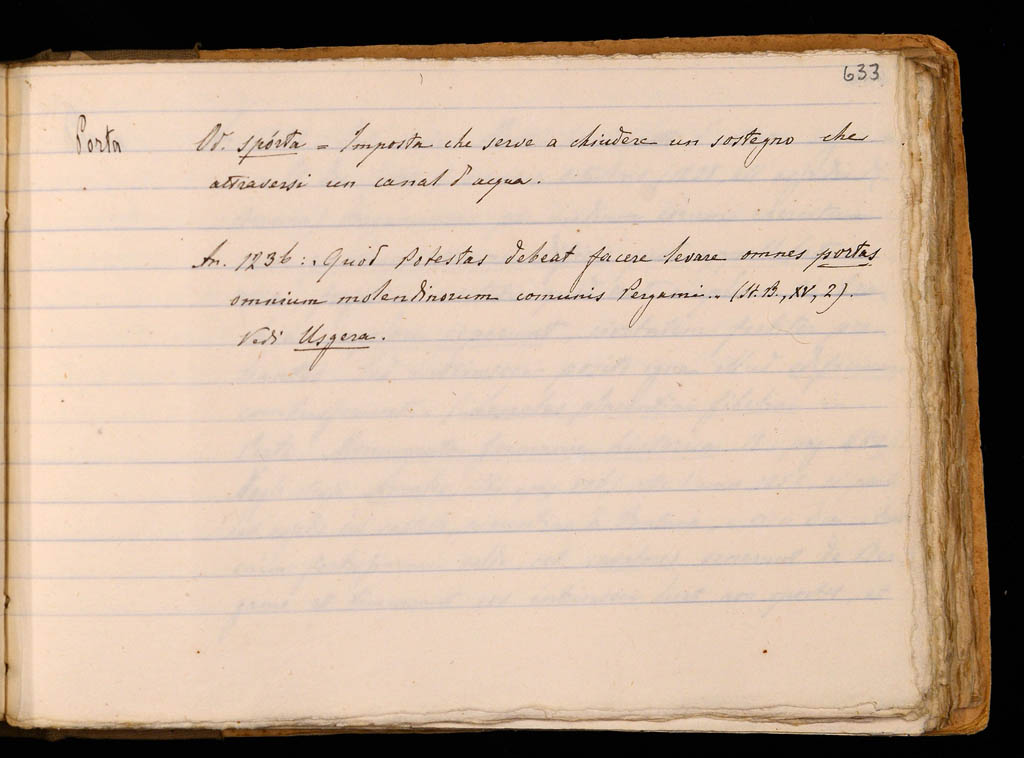 633
Porta
Od. spórta = Imposta che serve a chiudere un sostegno che
attraversi un canal d'acqua.
An. 1236: "Quod Potestas debeat facere levare omnes portas
omnium molendinorum comunis Pergami" (St. B., XV, 2).
Vedi Usgera.